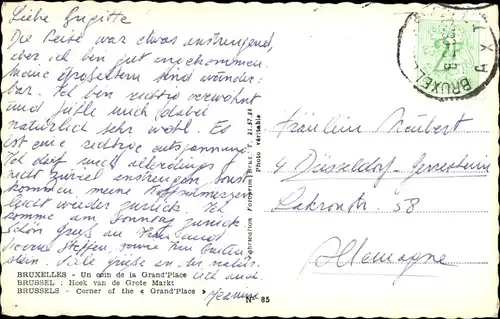 Liebe Brigitte
Die Reise war etwas anstrengend,
aber ich bin gut angekommen.
Meine Großeltern sind wunder-
bar. Ich bin richtig verwöhnt
und fühle mich dabei
natürlich sehr wohl. Es
ist eine richtige entspannung.
Ich darf mich allerdings
nicht zuviel anstrengen, sonst
kommen meine Kopfschmerzen
leicht wieder zurück. Ich
komme am Sonntag zurück
schön gruß an
Steffen, sowie
stern. Viele grüße an
ich auch.
BRUXELLES - Un coin de la Grand'Place
BRUSSEL : Hoek van de Grote Markt
BRUSSELS - Corner of the « Grand'Place »
N° 85
Photo véritable
BRUXELL
Fräulein Neubert
4 Düsseldorf-Gerresheim
58
Allemagne